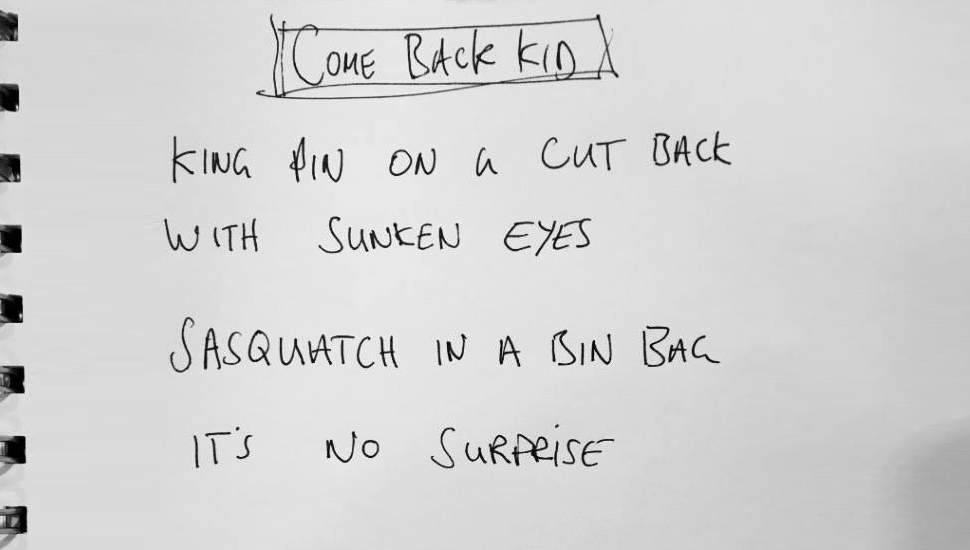 COME BACK KID
KING PIN ON A CUT BACK
WITH SUNKEN EYES
SASQUATCH IN A BIN BAG
IT'S NO SURPRISE